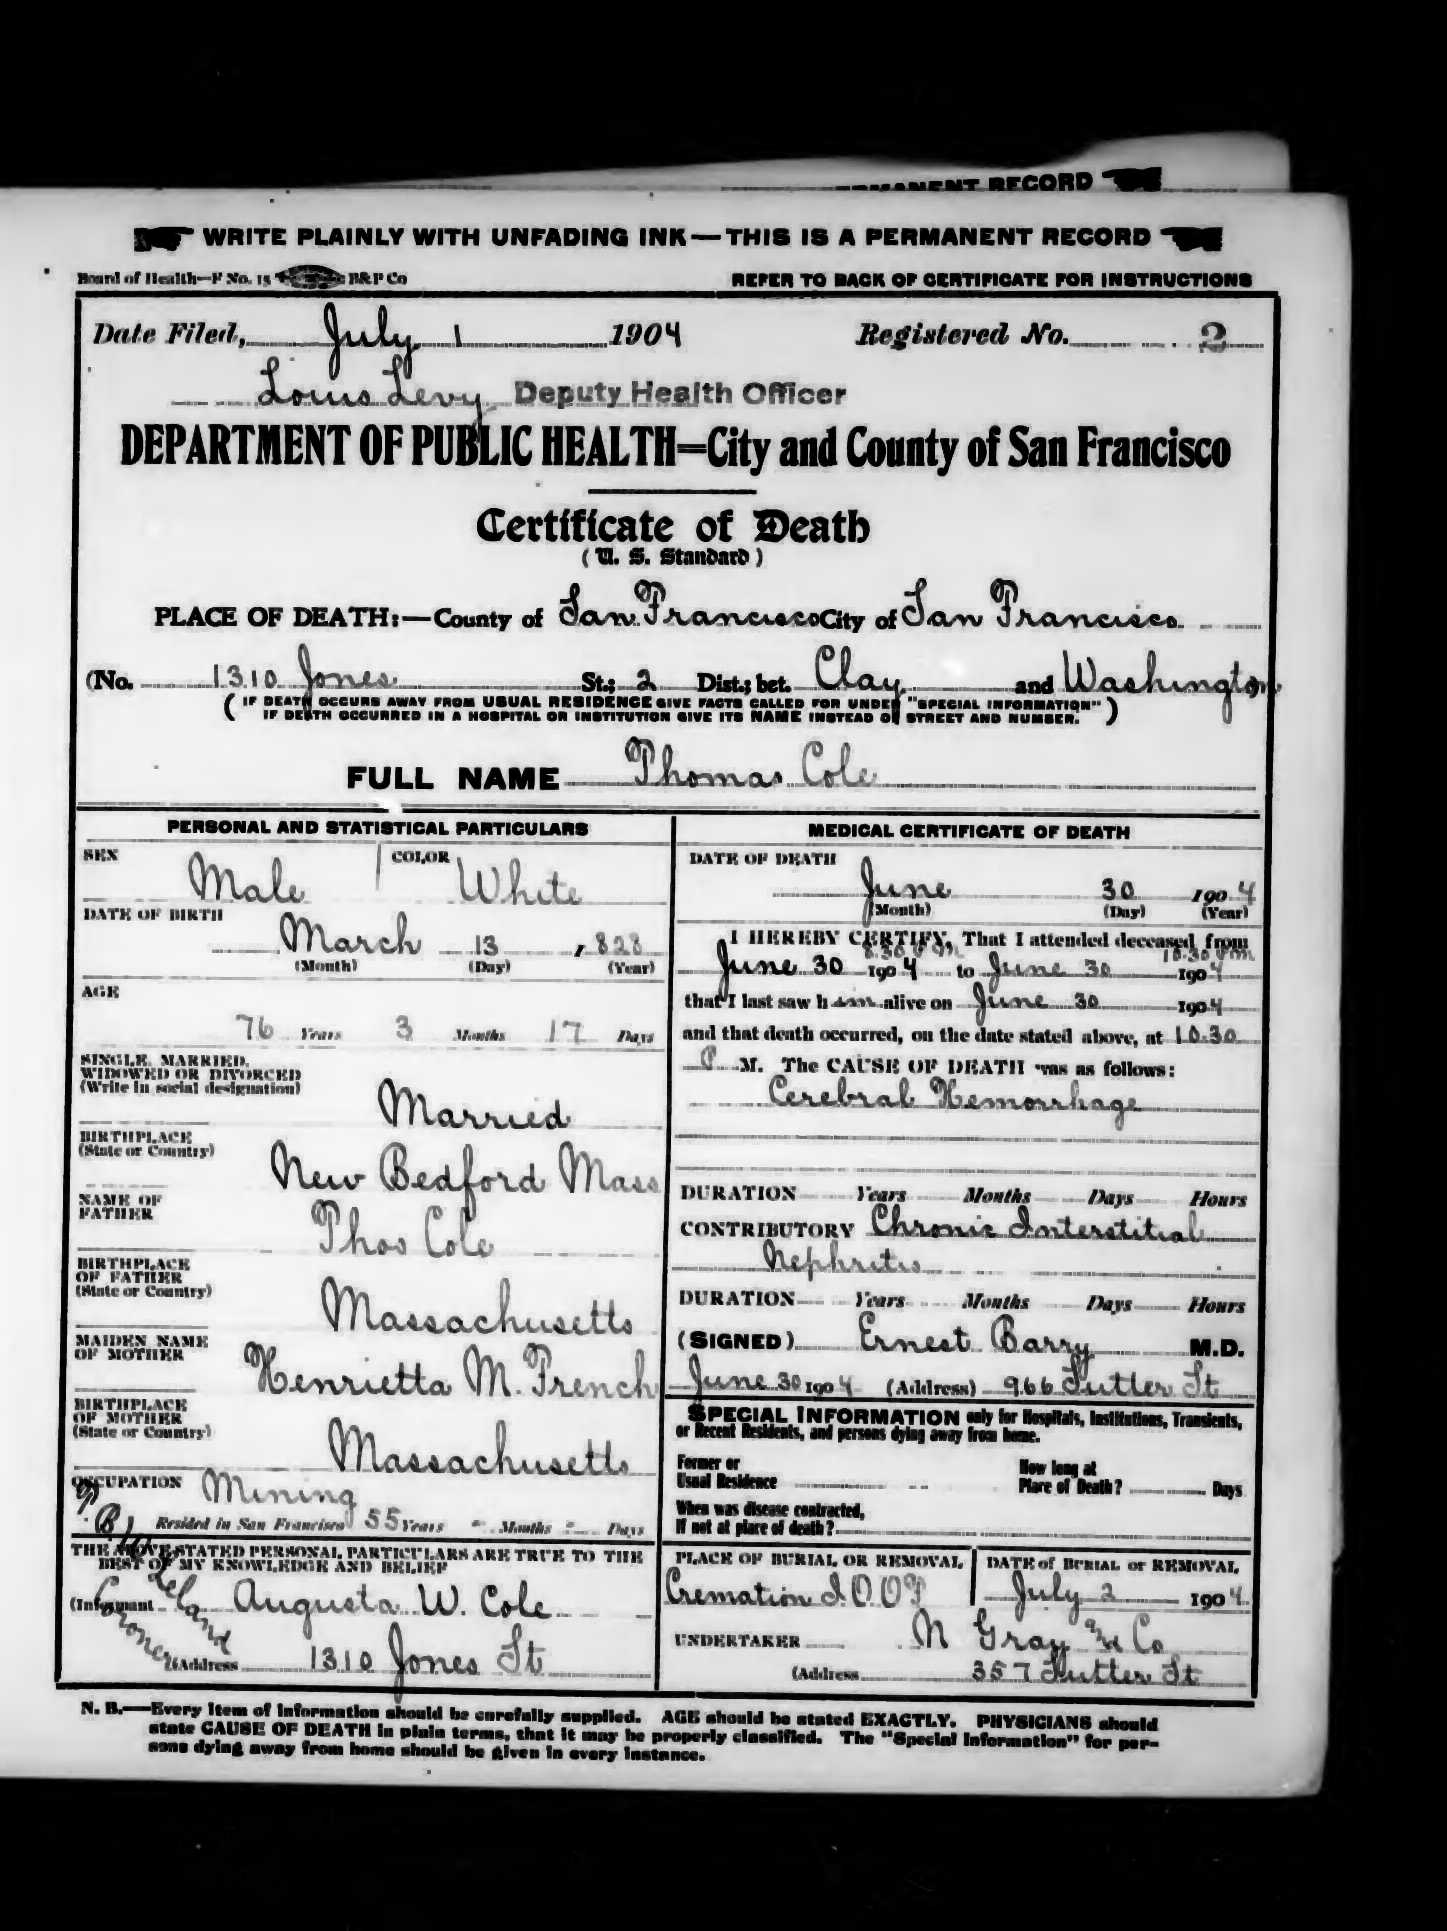 PERMANENT RECORD
WRITE PLAINLY WITH UNFADING INK—THIS IS A PERMANENT RECORD
Board of Health—F No. 15 B&P Co REFER TO BACK OF CERTIFICATE FOR INSTRUCTIONS
Date Filed, July 1 1904 Registered No. 2
Louis Levy Deputy Health Officer
DEPARTMENT OF PUBLIC HEALTH—City and County of San Francisco
Certificate of Death
(U. S. Standard)
PLACE OF DEATH:—County of San Francisco City of San Francisco
(No. 1310 Jones St.; 2 Dist.; bet. Clay and Washington
(IF DEATH OCCURS AWAY FROM USUAL RESIDENCE GIVE FACTS CALLED FOR UNDER "SPECIAL INFORMATION"
IF DEATH OCCURRED IN A HOSPITAL OR INSTITUTION GIVE ITS NAME INSTEAD OF STREET AND NUMBER.)
FULL NAME Thomas Cole
PERSONAL AND STATISTICAL PARTICULARS
SEX Male COLOR White
DATE OF BIRTH
March 13, 828
(Month) (Day) (Year)
AGE
76 Years 3 Months 17 Days
SINGLE, MARRIED,
WIDOWED OR DIVORCED
(Write in social designation)
Married
BIRTHPLACE
(State or Country)
New Bedford Mass
NAME OF
FATHER
Thos Cole
BIRTHPLACE
OF FATHER
(State or Country)
Massachusetts
MAIDEN NAME
OF MOTHER
Henrietta M. French
BIRTHPLACE
OF MOTHER
(State or Country)
Massachusetts
OCCUPATION Mining
Resided in San Francisco 55 Years - Months - Days
THE ABOVE STATED PERSONAL PARTICULARS ARE TRUE TO THE
BEST OF MY KNOWLEDGE AND BELIEF
(Informant Augusta W. Cole
(Address 1310 Jones St
Leland
Coroner
MEDICAL CERTIFICATE OF DEATH
DATE OF DEATH
June 30 1904
(Month) (Day) (Year)
I HEREBY CERTIFY, That I attended deceased from
8.30 P M 10.30 P M
June 30 1904 to June 30 1904
that I last saw him alive on June 30 1904
and that death occurred, on the date stated above, at 10.30
P M. The CAUSE OF DEATH was as follows:
Cerebral Hemorrhage
DURATION Years Months Days Hours
CONTRIBUTORY Chronic Interstitial
Nephritis
DURATION Years Months Days Hours
(SIGNED) Ernest Barry M.D.
June 30 1904 (Address) 966 Sutter St
SPECIAL INFORMATION only for Hospitals, Institutions, Transients,
or Recent Residents, and persons dying away from home.
Former or
Usual Residence
How long at
Place of Death? Days
When was disease contracted,
If not at place of death?
PLACE OF BURIAL OR REMOVAL
Cremation I.O.O.F
DATE of BURIAL or REMOVAL
July 2 1904
UNDERTAKER N Gray and Co
(Address 357 Sutter St
N. B.—Every item of information should be carefully supplied. AGE should be stated EXACTLY. PHYSICIANS should
state CAUSE OF DEATH in plain terms, that it may be properly classified. The "Special Information" for per-
sons dying away from home should be given in every instance.